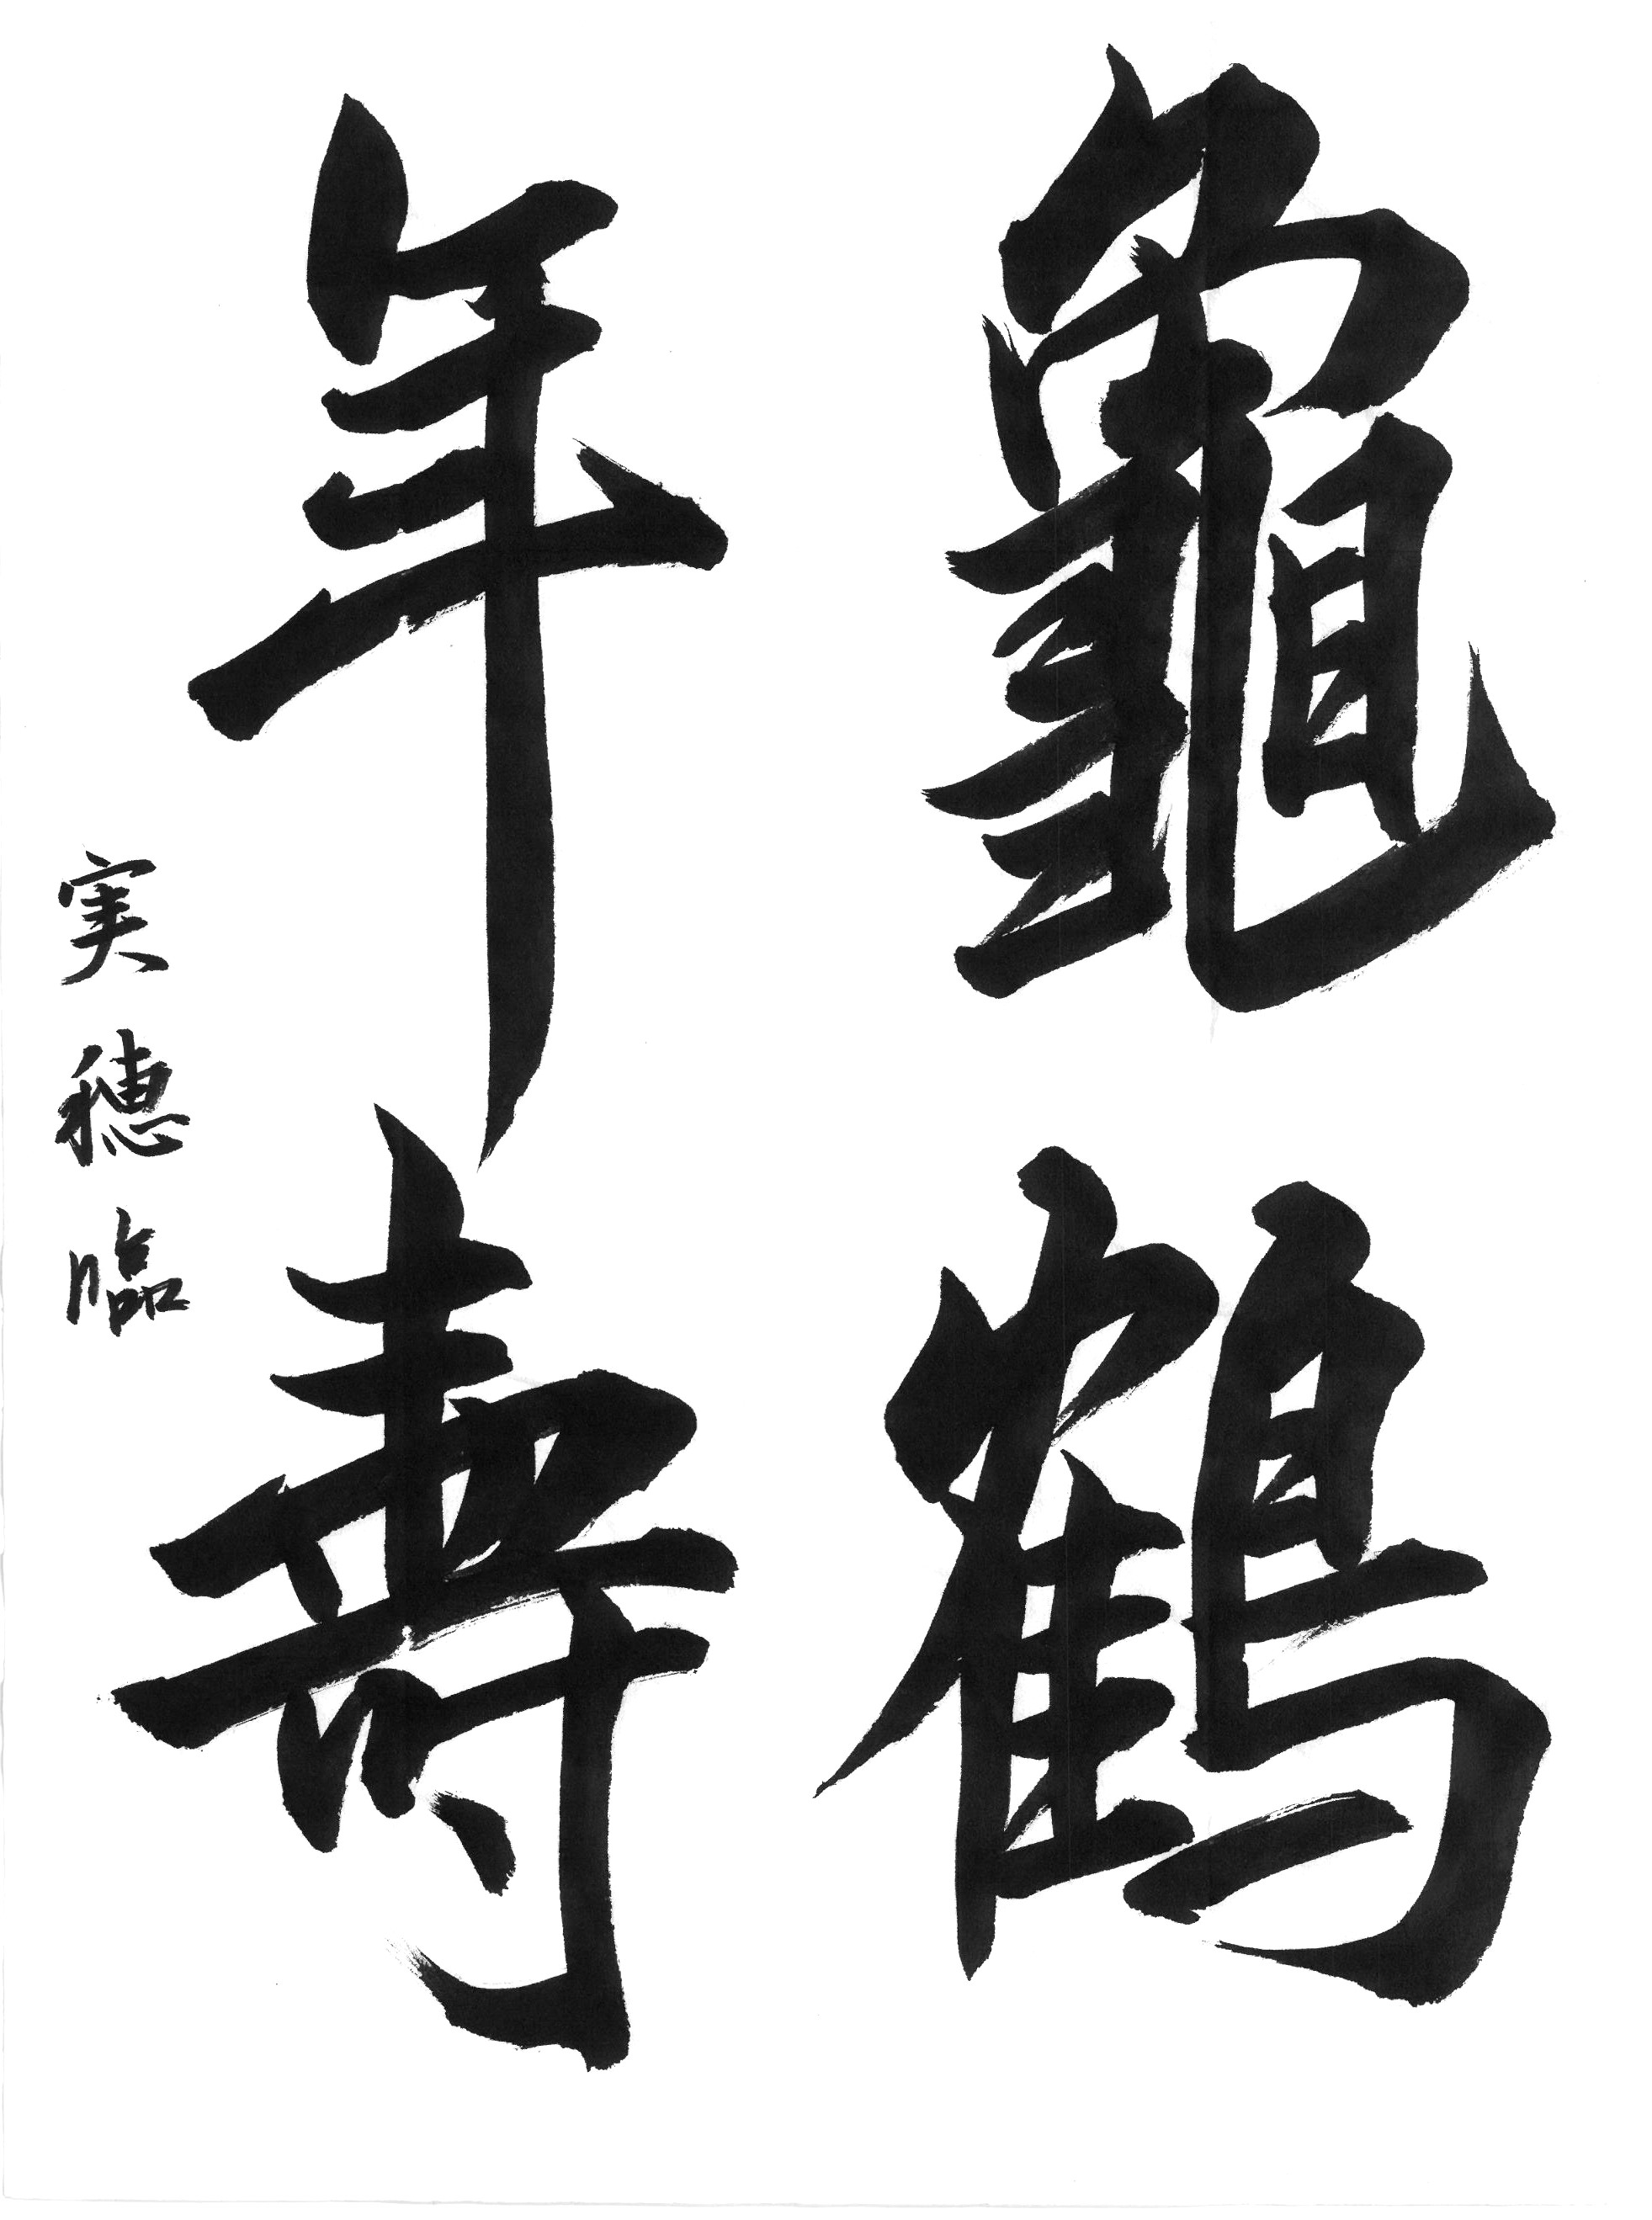 龜鶴
年壽
実穂臨